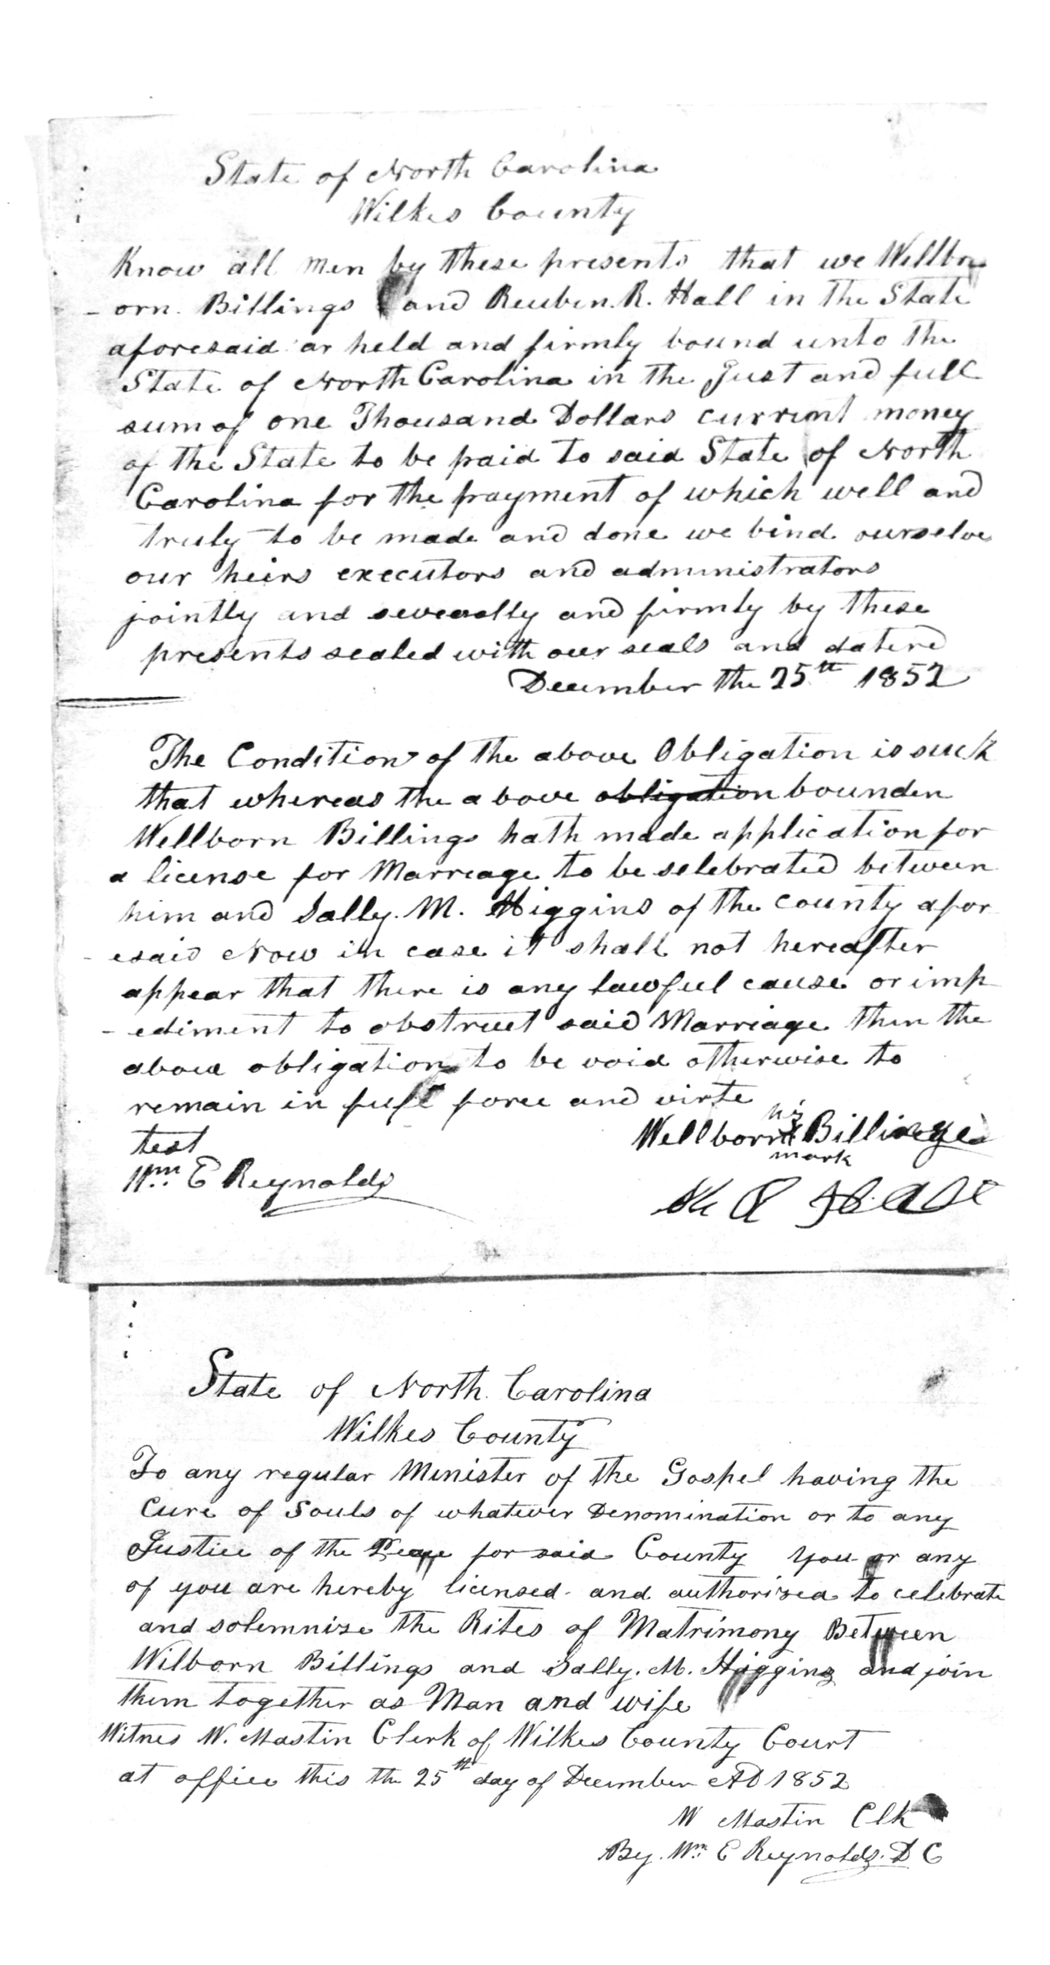 State of North Carolina
Wilkes County
Know all men by these presents that we Wellbo
- orn. Billings and Reuben. R. Hall in the State
aforesaid ar held and firmly bound unto the
State of North Carolina in the Just and full
sum of one Thousand Dollars current money
of the State to be paid to said State of North
Carolina for the payment of which well and
truly to be made and done we bind ourselve
our heirs executors and administrators
jointly and severally and firmly by these
presents sealed with our seals and datered
December the 25th 1852
The Condition of the above Obligation is such
that whereas the above obligation bounden
Wellborn Billings hath made application for
a license for Marreage to be selebrated between
him and Sally. M. Higgins of the county afor
- esaid Now in case it shall not hereafter
appear that there is any lawful cause or imp
- ediment to obstruct said Marriage then the
above obligation to be void otherwise to
remain in full force and virte
his
test
Wellborn X Billings
mark
Wm E Reynolds
R Hall
State of North Carolina
Wilkes County
To any regular Minister of the Gospel having the
Cure of Souls of whatever Denomination or to any
Justice of the Peace for said County you or any
of you are hereby licensed and authorised to celebrate
and solemnise the Rites of Matrimony Between
Wilborn Billings and Sally. M. Higgins and join
them together as Man and wife
Witnes W. Mastin Clerk of Wilkes County Court
at office this the 25th day of December AD 1852
W Mastin Clk
By. Wm E Reynolds. D C